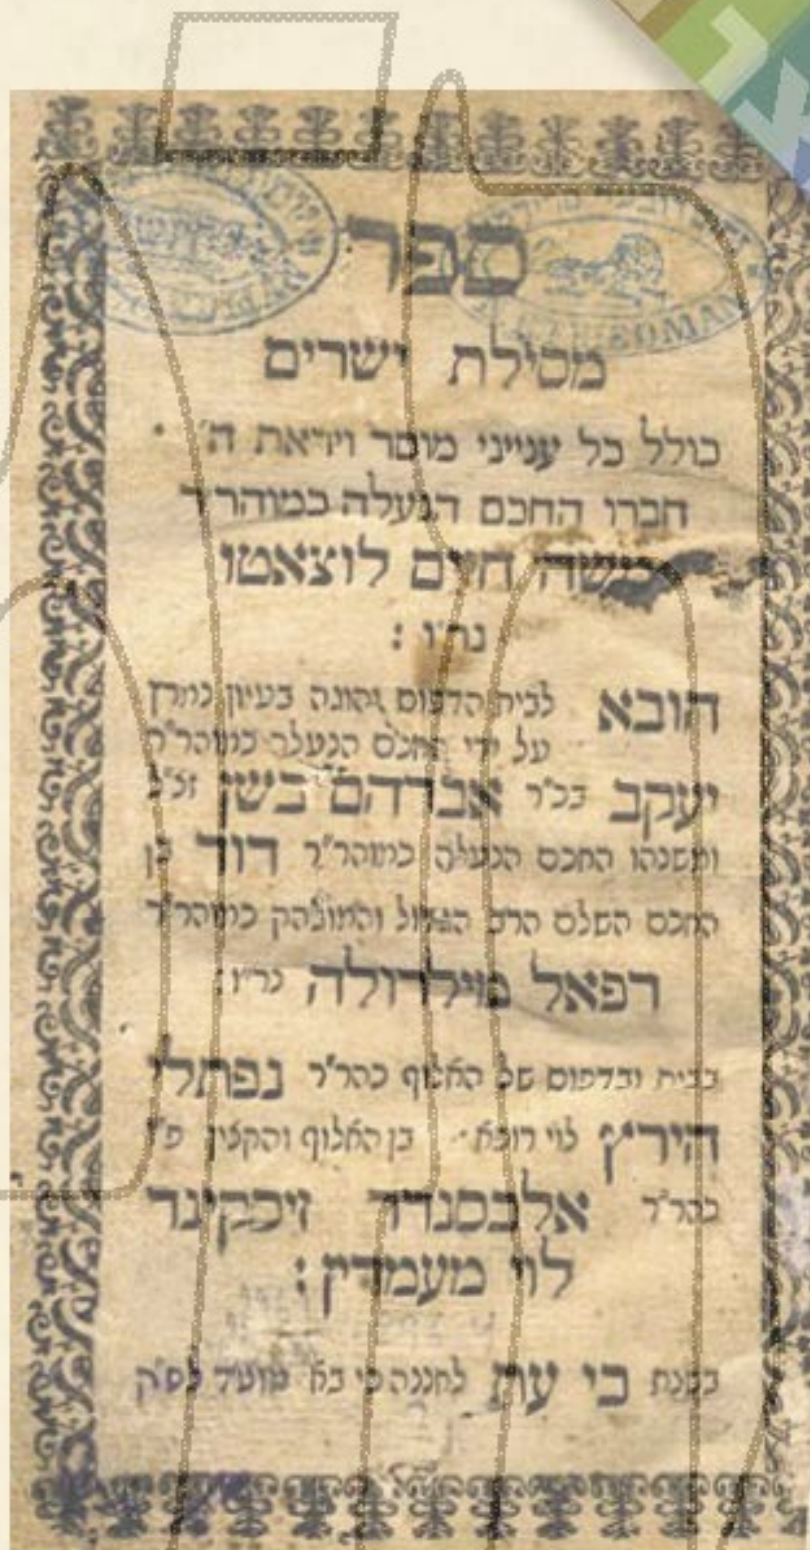 ספר
מסילת ישרים
כולל כל ענייני מוסר ויראת ה'
חברו החכם הנעלה כמוהר"ר
משה חיים לוצאטו
נר"ו :
הובא לבית הדפוס והוגה בעיון נמרץ
על ידי החכם הנעלה כמוהר"ר
יעקב בכ"ר אברהם בשן זצ"ל
ומשנהו החכם הנעלה כמוהר"ר דוד בן
החכם השלם הרב הגדול והמובהק כמוהר"ר
רפאל מילדולה נר"ו :
בבית ובדפוס של האלוף כהר"ר נפתלי
הירץ לוי רופא בן האלוף והקצין פ"ו
כהר"ר אלכסנדר זיסקינד
לוי מעמדין :
בשנת כי עת לחננה כי בא מועד לפ"ק